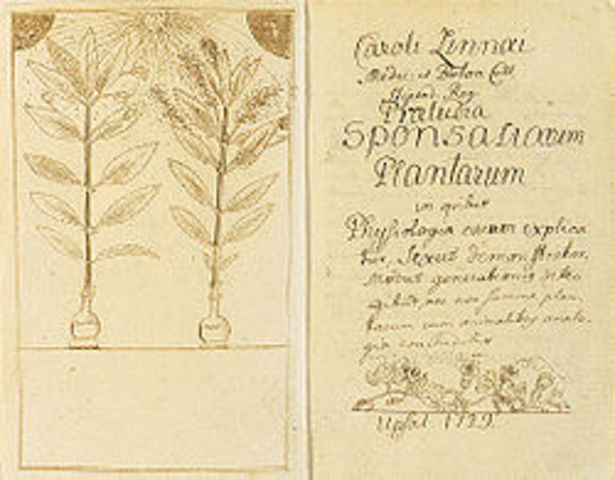 Caroli Linnæi
Medic: et Botan Cult
Stipend. Reg
Præludia
Sponsaliarum
Plantarum
in quibus
Physiologia earum explica
tur, Sexus demonstratur
modus generationis dete
gitur, nec non summa plan
tarum cum animalibus analo
gia concluditur
Upsal 1729.